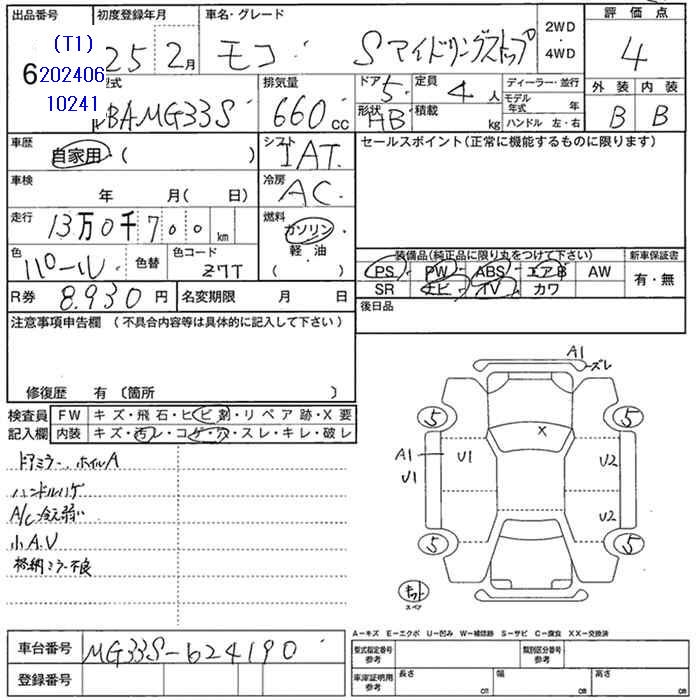 出品番号 初度登録年月 車名・グレード 2WD・4WD 評価点
(T1)
6 202406 10241
25年2月 モコ Sアイドリングストップ 4
型式 排気量 ドア 定員 ディーラー・並行 外装 内装
DBA-MG33S 660cc 5 4人 モデル年式 年 B B
形状 HB 積載 kg ハンドル 左・右
車歴 自家用・( ) シフト IAT
セールスポイント(正常に機能するものに限ります)
車検 年 月( 日) 冷房 AC
走行 13万0千700km 燃料 ガソリン・軽・油 ( )
色 パール 色替 色コード Z7T
装備品(純正品に限り丸をつけて下さい) 新車保証書
PS PW ABS エアB AW 有・無
SR ナビ TV カワ
R券 8,930円 名変期限 月 日
後日品
注意事項申告欄(不具合内容等は具体的に記入して下さい)
修復歴 有(箇所 )
検査員記入欄 FW キズ・飛石・ヒビ割・リペア跡・X要
内装 キズ・汚レ・コゲ・穴・スレ・キレ・破レ
ドアミラー、ホイルA
ハンドルハゲ
A/C冷え弱い
小A.U
格納ミラー不良
A1 ズレ
5 5
X
A1 U1 U1 U2
U2
5 5
キット
スペア
A-キズ E-エクボ U-凹み W-補修跡 S-サビ C-腐食 XX-交換済
車台番号 MG33S-624190
登録番号
型式指定番号参考 類別区分番号参考
車庫証明用参考 長さ cm 幅 cm 高さ cm